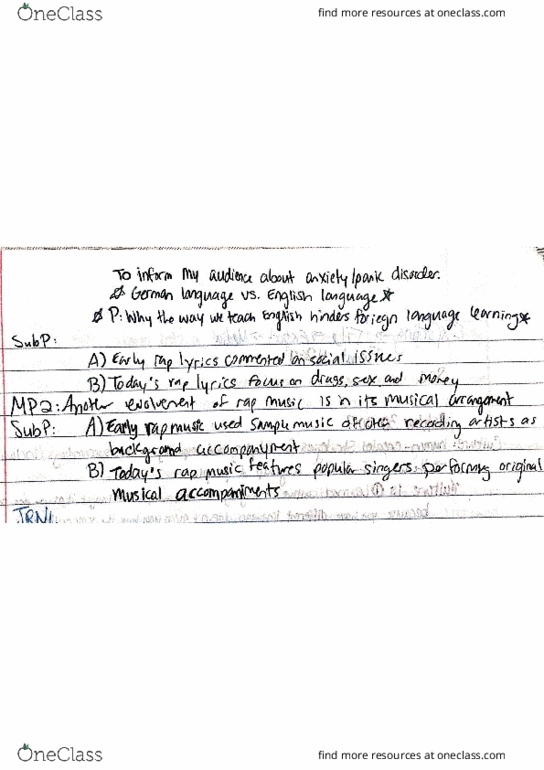 OneClass
find more resources at oneclass.com
To inform my audience about anxiety/panic disorder.
German language vs. English language
P: Why the way we teach English hinders foriegn language learning
SubP:
A) Early rap lyrics commented on social issues
B) Today's rap lyrics focus on drugs, sex, and money
MP2: Another evolvement of rap music is in its musical arrangement
SubP: A) Early rap music used sample music of other recoding artists as
background accompanyment
B) Today's rap music features popular singers performing original
musical accompaniments
OneClass
find more resources at oneclass.com